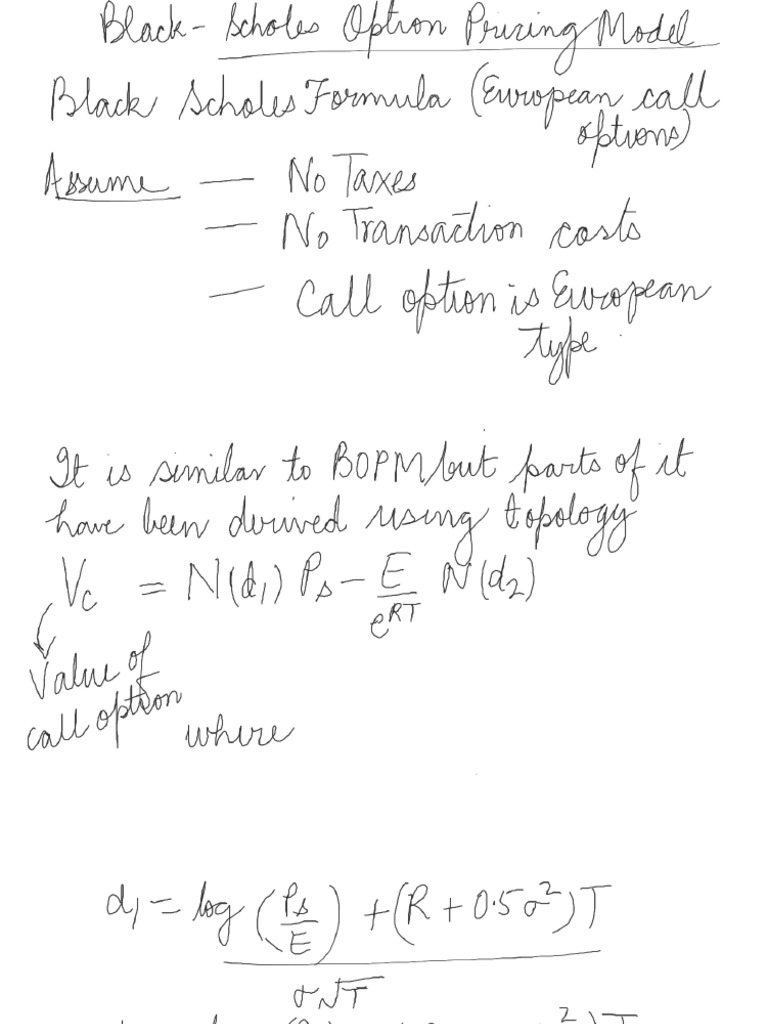 Black-Scholes Option Pricing Model
Black Scholes Formula (European call
options)
Assume — No Taxes
— No Transaction costs
— Call option is European
type.
It is similar to BOPM but parts of it
have been derived using topology
Vc = N(d1) Ps - E/e^RT N(d2)
Value of
call option
where
d1 = log (Ps/E) + (R + 0.5σ²)T
σ√T